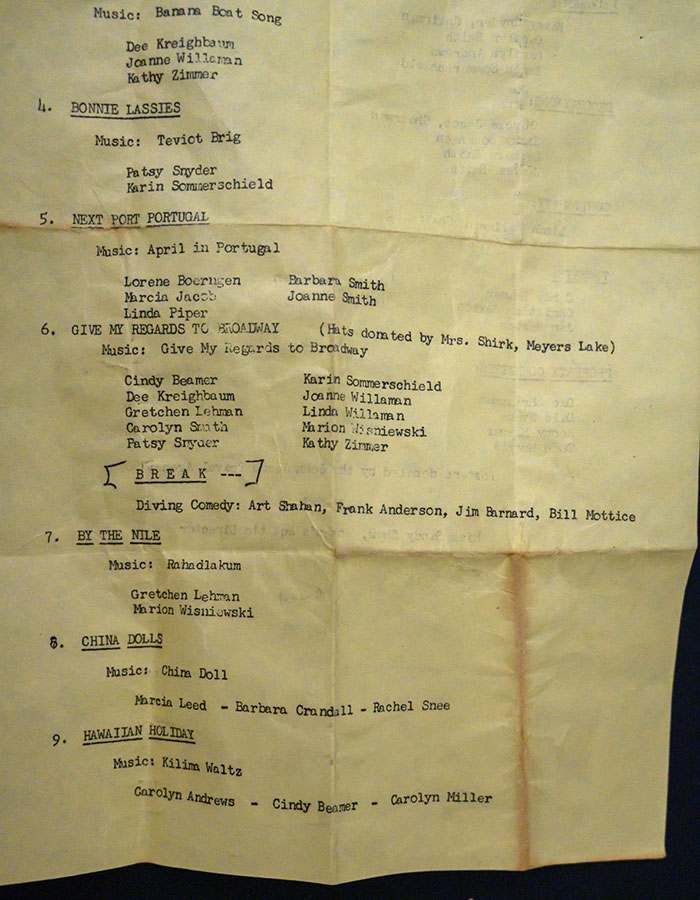 Music: Banana Boat Song
Dee Kreighbaum
Joanne Willaman
Kathy Zimmer
4. BONNIE LASSIES
Music: Teviot Brig
Patsy Snyder
Karin Sommerschield
5. NEXT PORT PORTUGAL
Music: April in Portugal
Lorene Boerngen Barbara Smith
Marcia Jacob Joanne Smith
Linda Piper
6. GIVE MY REGARDS TO BROADWAY (Hats donated by Mrs. Shirk, Meyers Lake)
Music: Give My Regards to Broadway
Cindy Beamer Karin Sommerschield
Dee Kreighbaum Joanne Willaman
Gretchen Lehman Linda Willaman
Carolyn Smith Marion Wisniewski
Patsy Snyder Kathy Zimmer
[ BREAK --- ]
Diving Comedy: Art Shahan, Frank Anderson, Jim Barnard, Bill Mottice
7. BY THE NILE
Music: Rahadlakum
Gretchen Lehman
Marion Wisniewski
8. CHINA DOLLS
Music: China Doll
Marcia Leed - Barbara Crandall - Rachel Snee
9. HAWAIIAN HOLIDAY
Music: Kilima Waltz
Carolyn Andrews - Cindy Beamer - Carolyn Miller